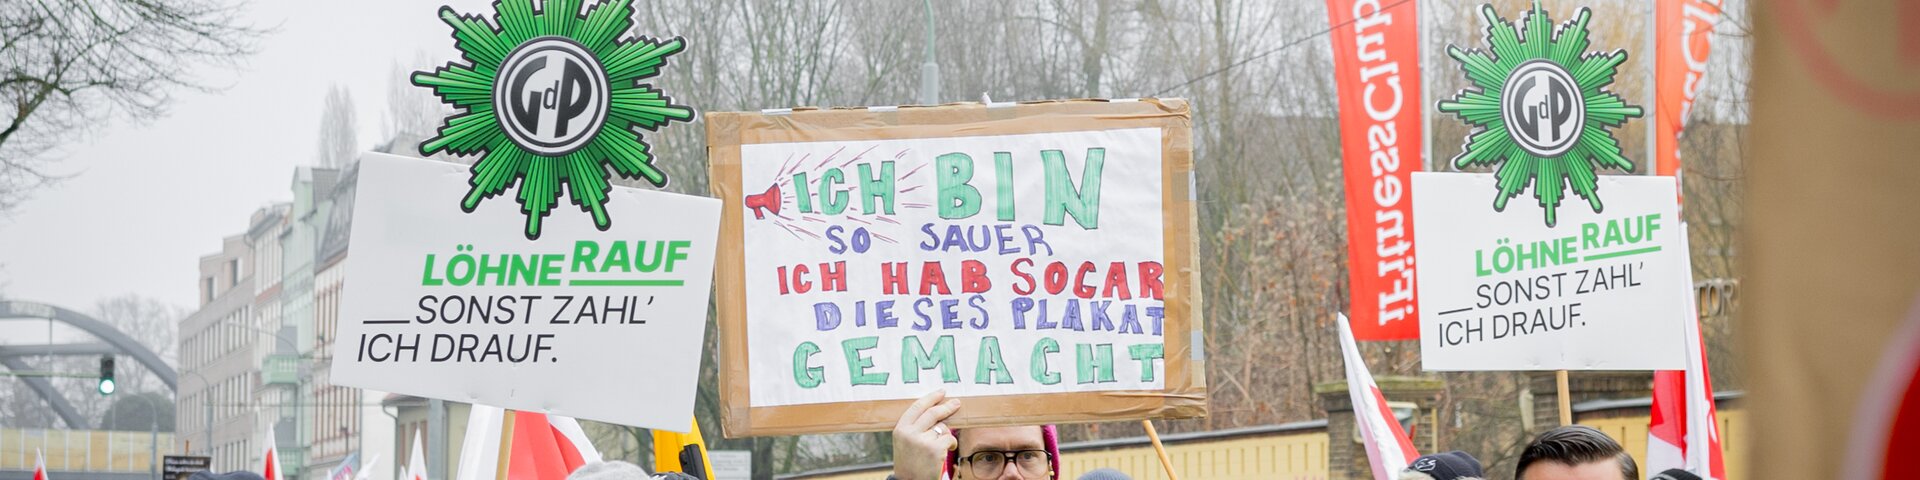 GdP
LÖHNE RAUF
SONST ZAHL'
ICH DRAUF.
ICH BIN
SO SAUER
ICH HAB SOGAR
DIESES PLAKAT
GEMACHT
iFitnessClub
GdP
LÖHNE RAUF
SONST ZAHL'
ICH DRAUF.